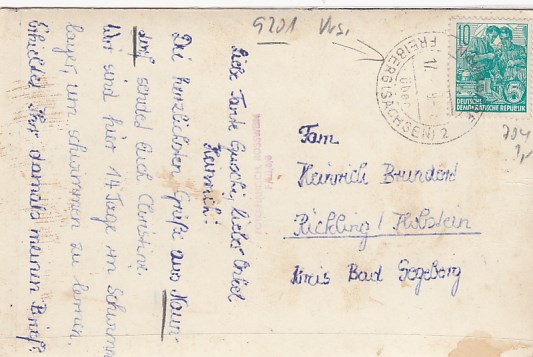 Liebe Tante Guschi, lieber Onkel
Heinrich!
Die herzlichsten Grüße aus Naun-
dorf sendet Euch Christine.
Wir sind für 14 Tage im Schwimm-
lager, um schwimmen zu lernen.
Erhieltet Ihr damals meinen Brief?
Fam.
Heinrich
Rickling / Holstein
Kreis Bad Segeberg
FREIBERG (SACHSEN) 2
10
DEUTSCHE
DEMOKRATISCHE REPUBLIK